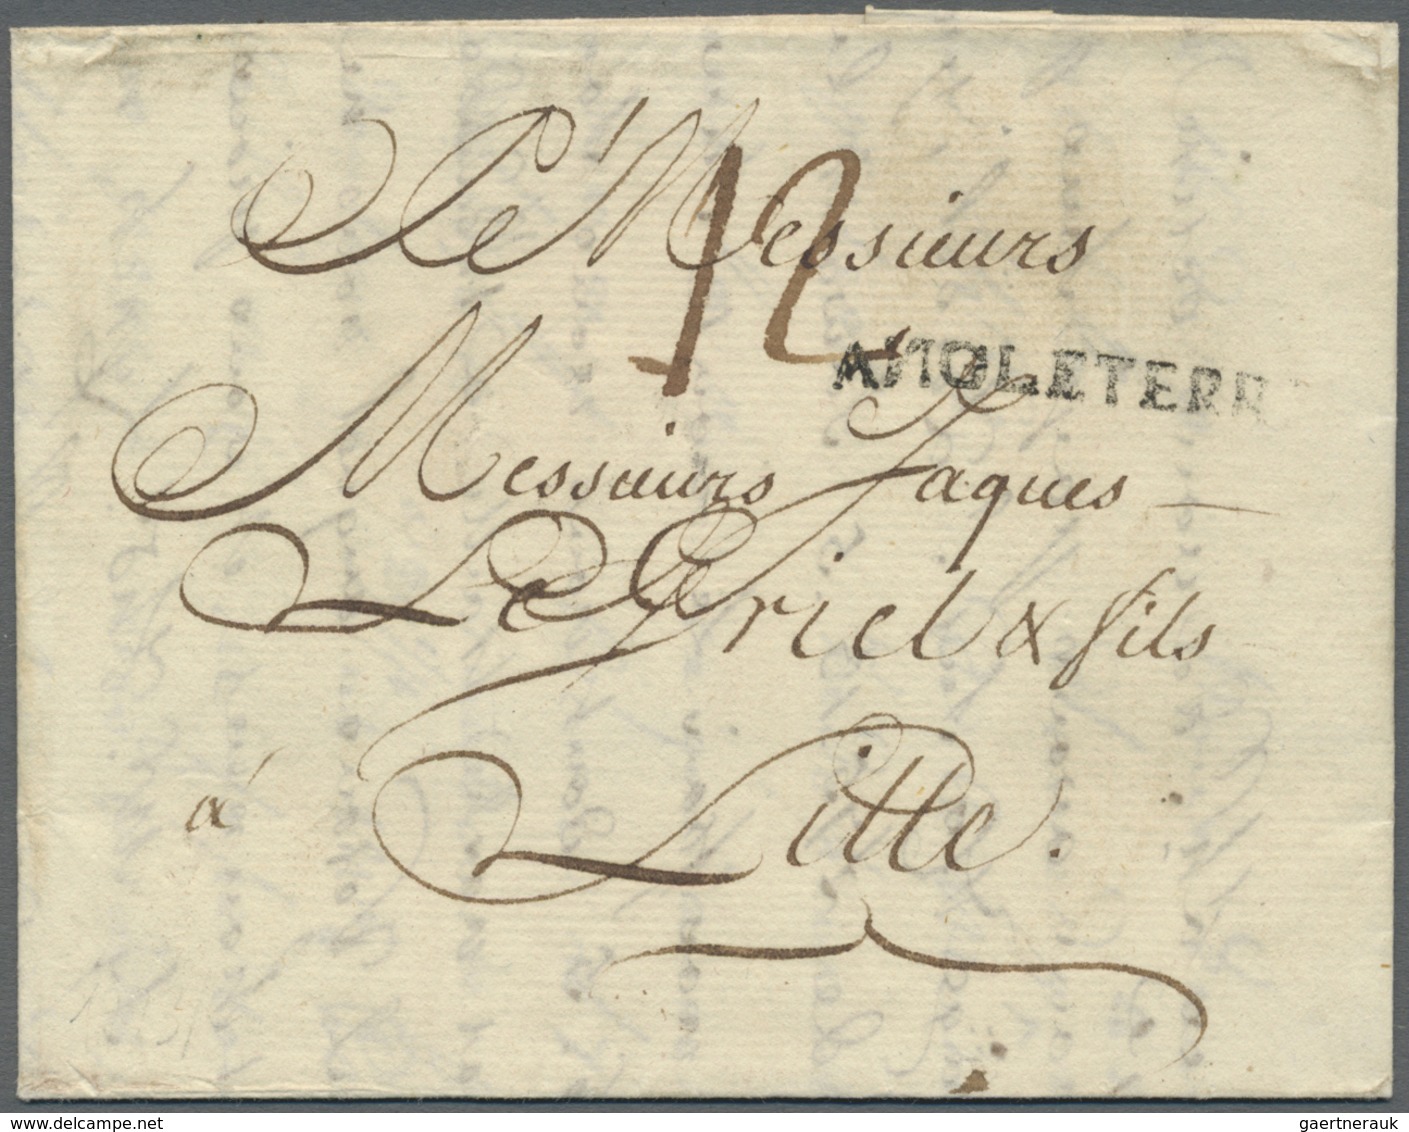 A Messieurs
12
ANGLETERR
Messieurs Jaques
Le Griel & fils
á Lille.
www.delcampe.net
gaertnerauk